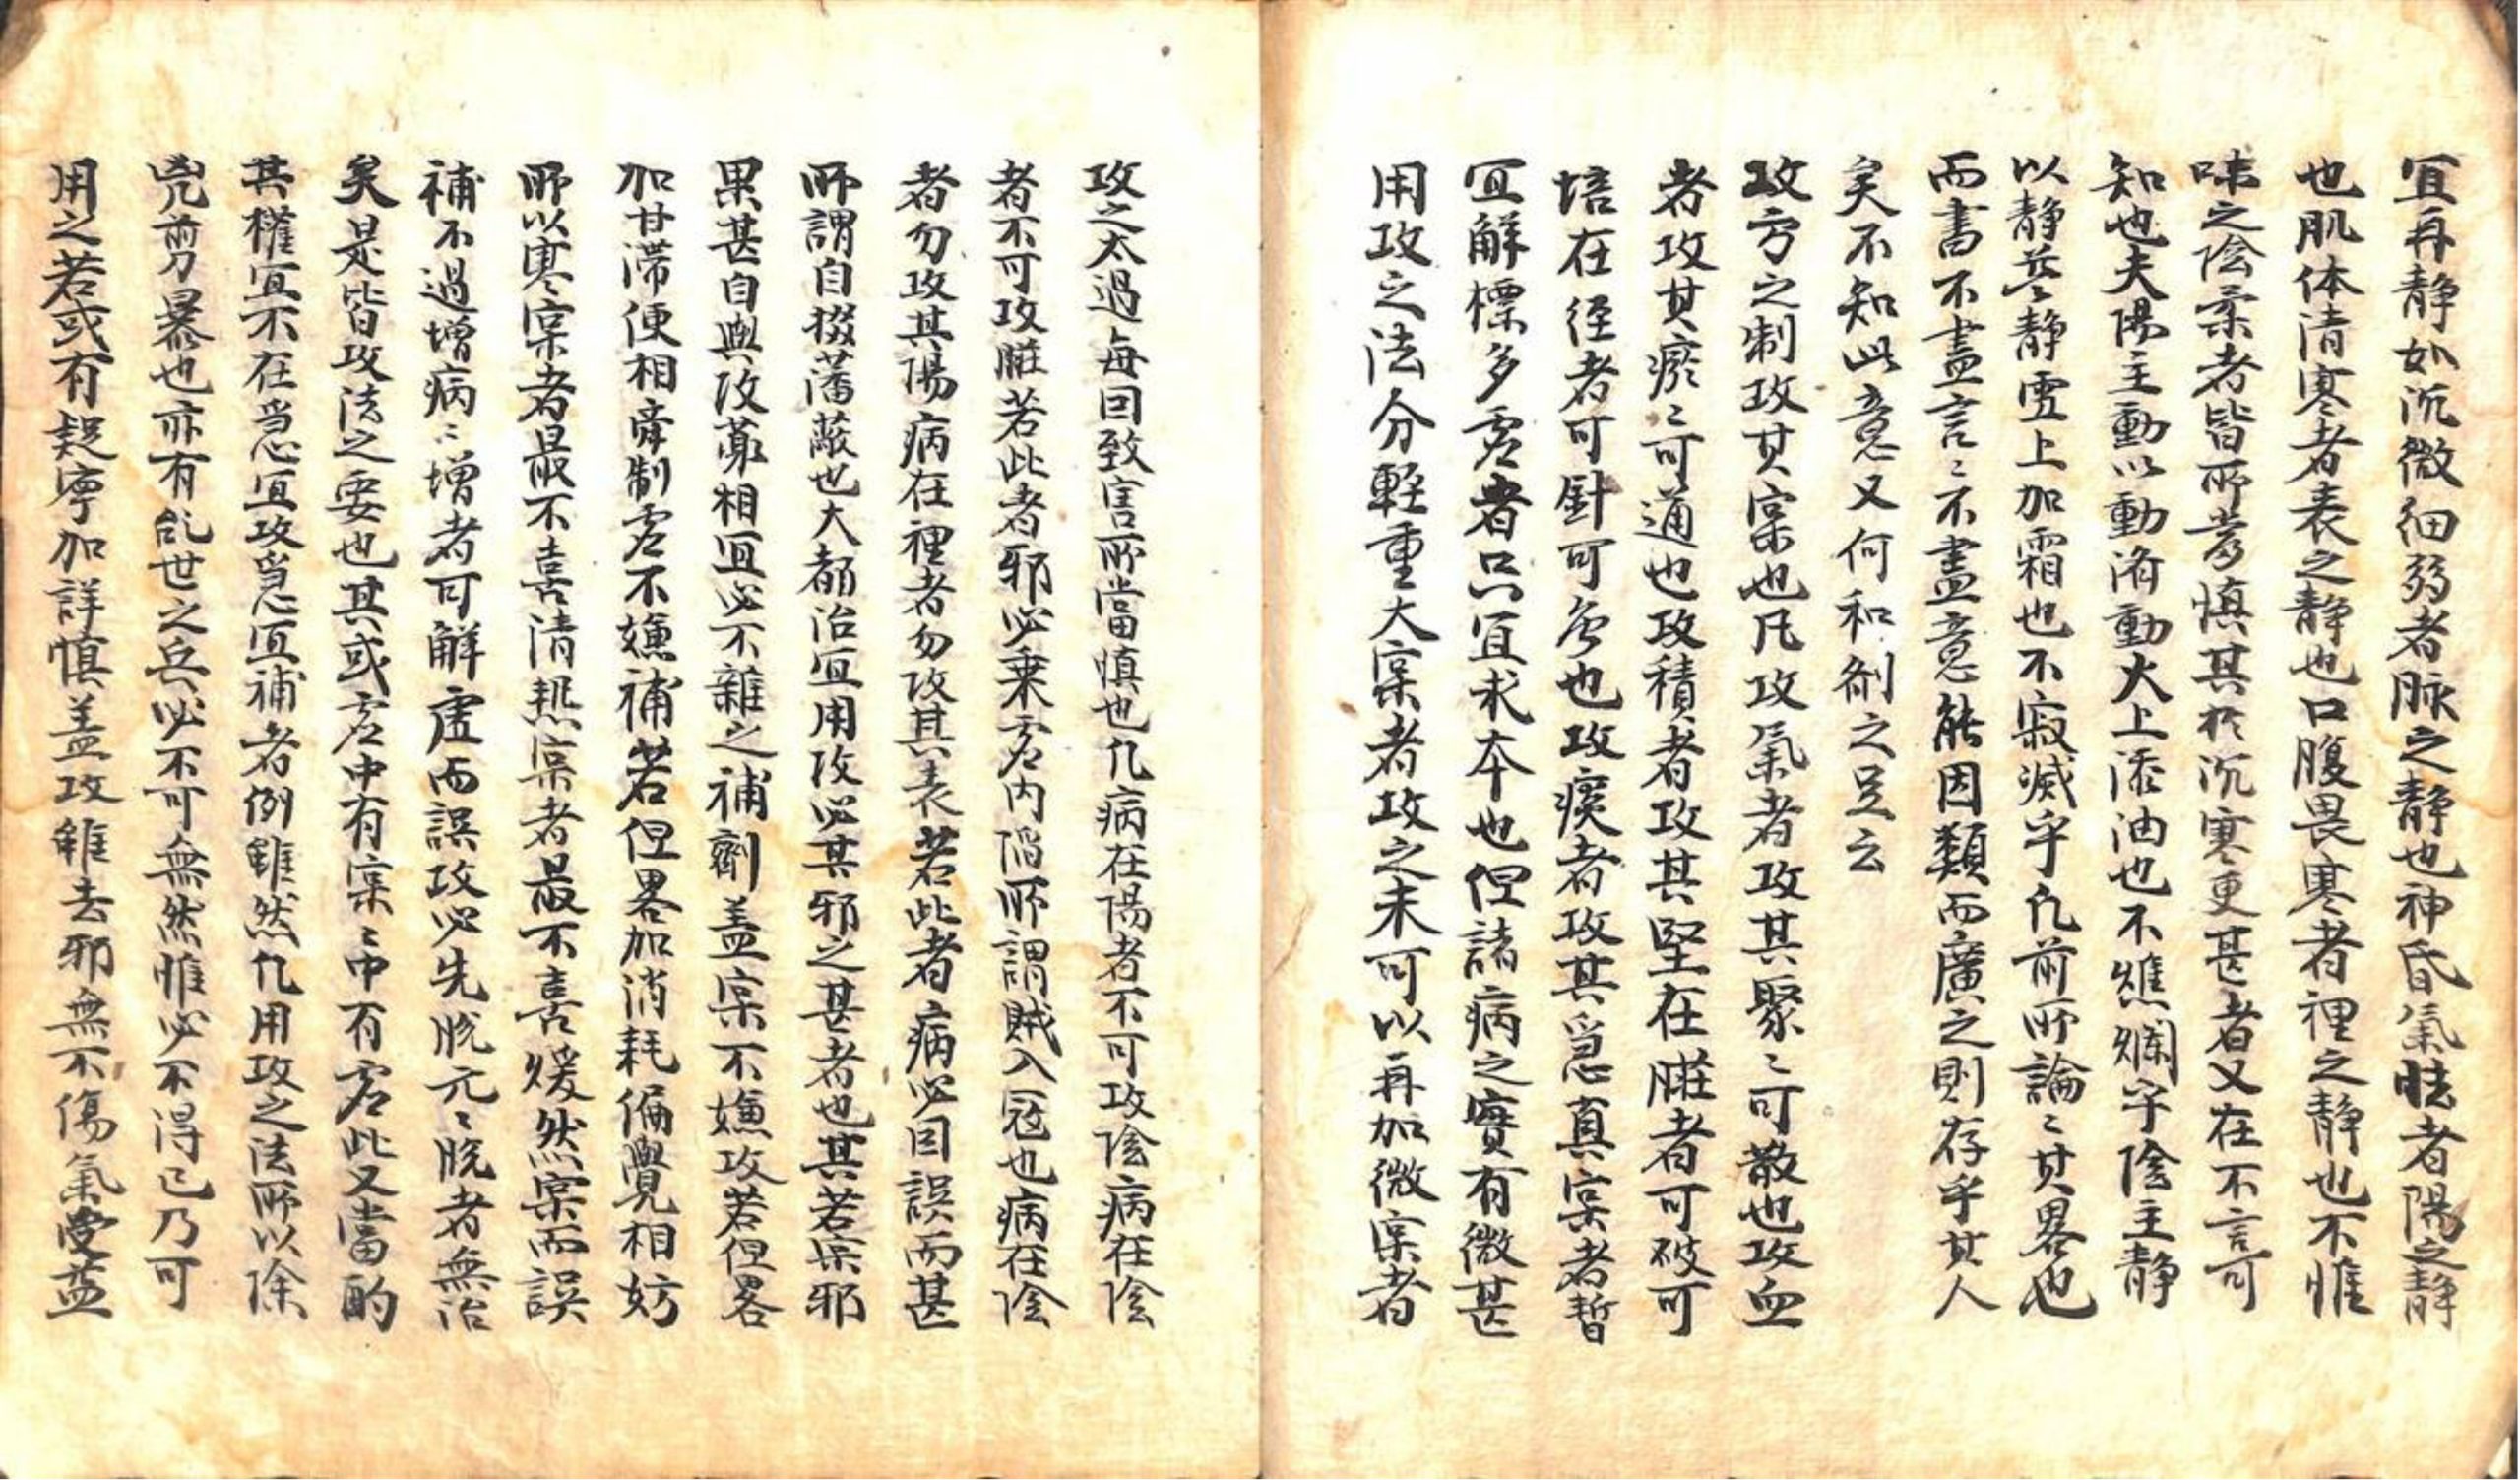 宜再静如沉微细弱者脉之静也神昏氣怯者陽之静
也肌体清寒者表之静也口腹畏寒者裡之静也不惟
味之陰柔者皆所當慎其於沉寒更甚者又在不言可
知也夫陽主動以動済動火上添油也不燋爛乎陰主静
以静益静雪上加霜也不寂滅乎凢前所論〻其畧也
而書不盡言〻不盡意能因類而廣之則存乎其人
矣不知此意又何和剂之足云
攻方之制攻其寔也凡攻氣者攻其聚〻可散也攻血
者攻其瘀〻可通也攻積者攻其堅在臟者可破可
培在径者可針可灸也攻痰者攻其急真寔者暫
宜解標多虗者只宜求本也但諸病之實有微甚
用攻之法分軽重大寔者攻之未可以再加微寔者
攻之太過每因致害所當慎也凢病在陽者不可攻陰病在陰
者不可攻臟若此者邪必乗虗内陷所謂賊入冦也病在陰
者勿攻其陽病在裡者勿攻其表若此者病必因誤而甚
所謂自撥藩蔽也大都治宜用攻必其邪之甚者也其若寔邪
果甚自與攻藥相宜必不雜之補劑盖寔不嫌攻若但畧
加甘滞便相牽制虗不嫌補若但畧加消耗偏覺相妨
所以寒寔者最不喜清熱寔者最不喜煖然寔而誤
補不過增病〻增者可解虛而誤攻必先脱元〻脱者無治
矣是皆攻法之要也其或虗中有寔〻中有虗此又當酌
其權宜不在急宜攻急宜補者例雖然凢用攻之法所以除
兇剪暴也亦有乱世之兵必不可無然惟必不得已乃可
用之若或有疑寧加詳慎盖攻雖去邪無不傷氣受益